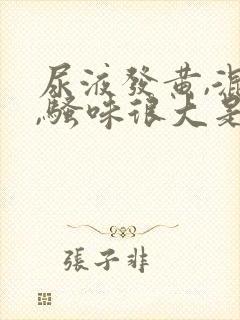 尿液發黄,混
,騷味很大是
張子非